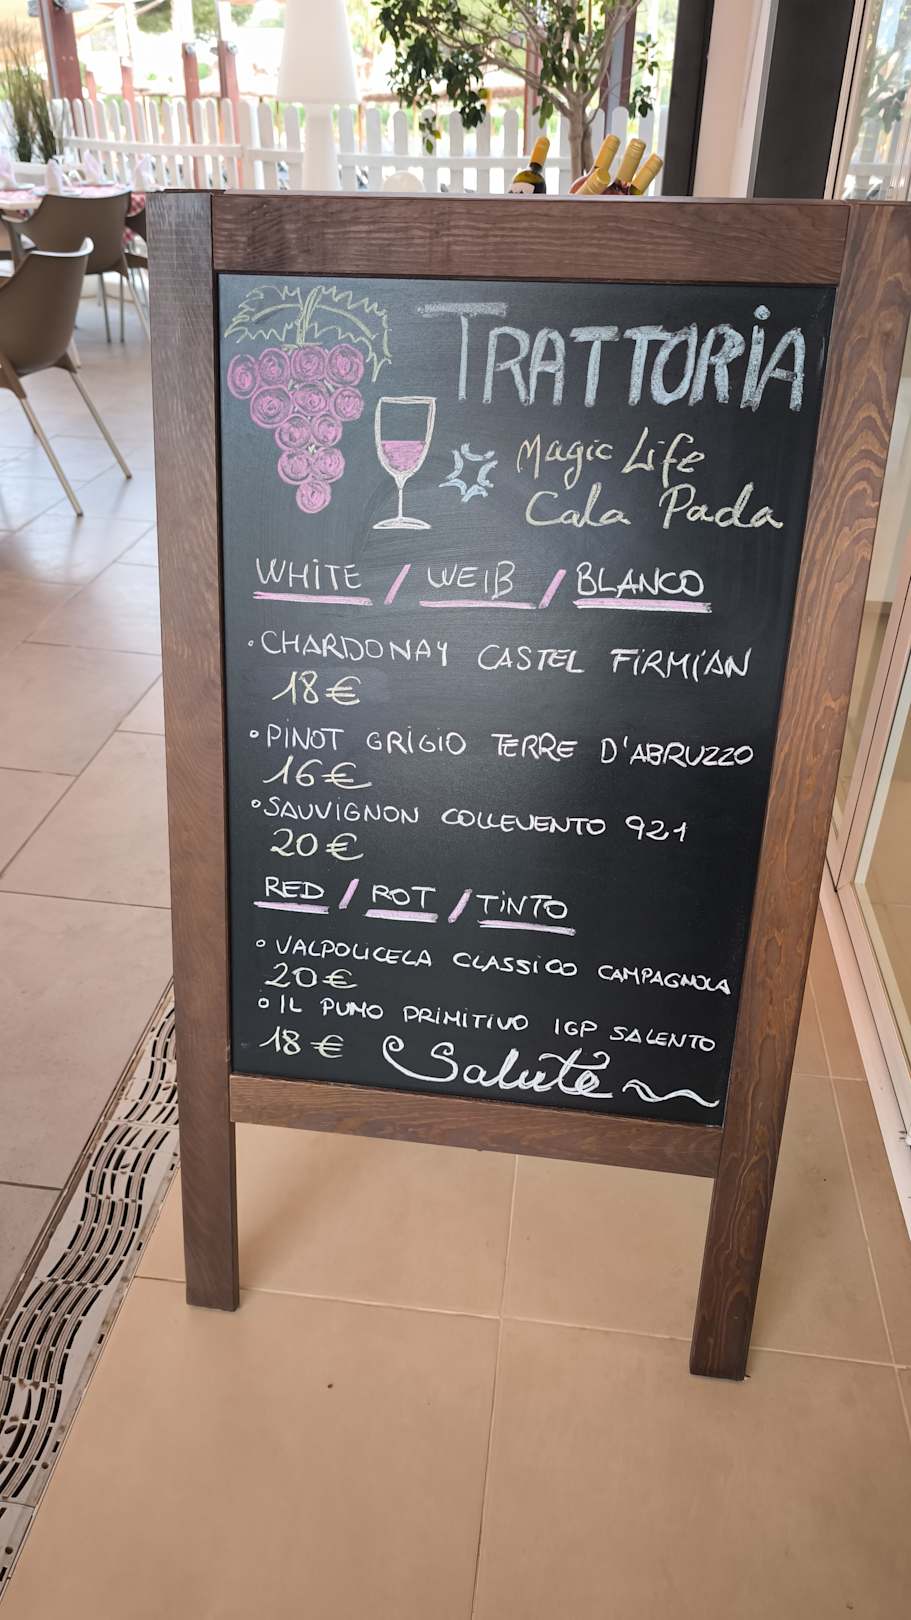 TRATTORIA
Magic Life
Cala Pada
WHITE / WEIß / BLANCO
• CHARDONAY CASTEL FIRMIAN
18€
• PINOT GRIGIO TERRE D'ABRUZZO
16€
• SAUVIGNON COLLEVENTO 921
20€
RED / ROT / TINTO
• VALPOLICELA CLASSICO CAMPAGNOLA
20€
• IL PUMO PRIMITIVO IGP SALENTO
18€
Salute